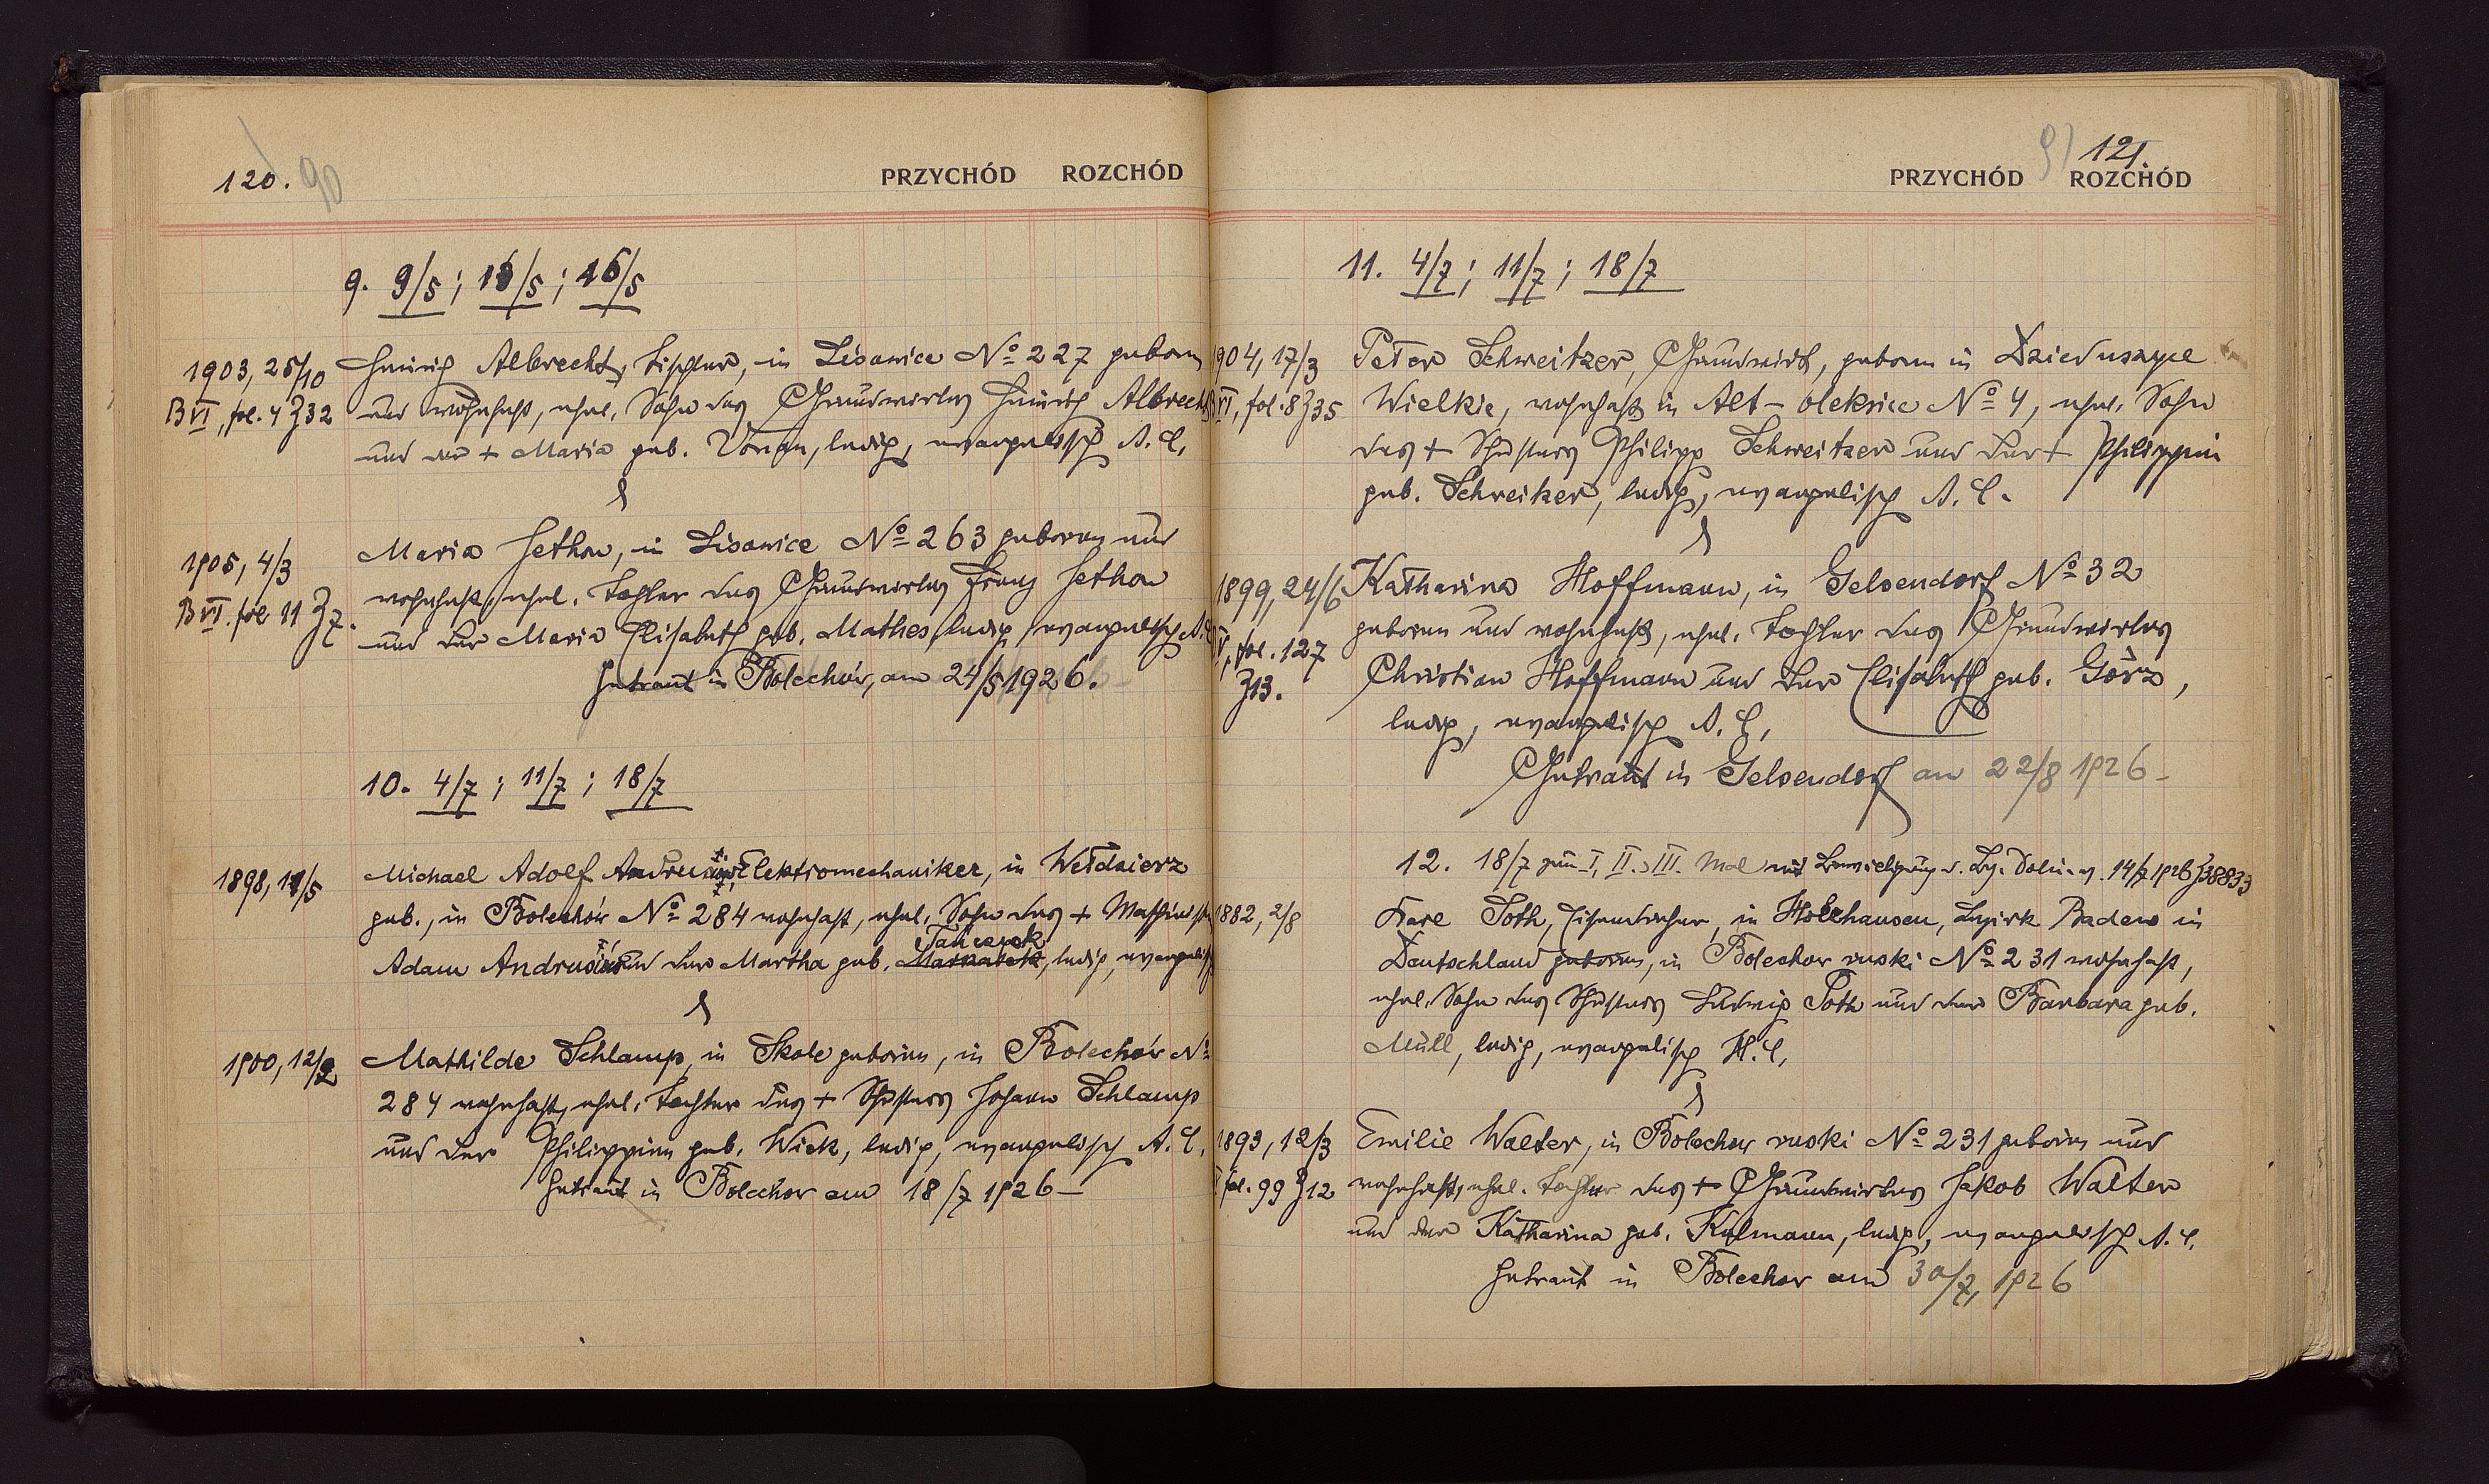 120. 90
PRZYCHÓD ROZCHÓD
9. 9/5; 13/5; 16/5
1903, 25/10
B VI, fol. 4 Z 32
Heinrich Albrecht, Tischler, in Lisowice No 227 geboren
und wohnhaft, ehel. Sohn des Grundwirtes Heinrich Albrecht
und der + Maria geb. Vonau, ledig, evangelisch A. C.
&
1905, 4/3
B VI. fol 11 Z 7.
Maria Jethon, in Lisowice No 263 geboren und
wohnhaft, ehel. Tochter des Grundwirtes Franz Jethon
und der Maria Elisabeth geb. Mathes, ledig, evangelisch A. C.
Getraut in Bolechów, am 24/5 1926.
10. 4/7; 11/7; 18/7
1898, 11/5
Michael Adolf Elektromechaniker, in Wełdzierz
geb., in Bolechów No 284 wohnhaft, ehel. Sohn des + Maschinisten
Adam und der Martha geb. Tańczak, ledig, evangelisch
&
1900, 12/2
Mathilde Schlamp, in Skole geboren, in Bolechów No
284 wohnhaft, ehel. Tochter des + Schusters Johann Schlamp
und der Philippine geb. Wick, ledig, evangelisch A. C.
Getraut in Bolechow am 18/7 1926 –
121.
PRZYCHÓD ROZCHÓD
11. 4/7; 11/7; 18/7
1904, 17/3
VI, fol. 8 Z 35
Peter Schweitzer, Grundwirt, geboren in Dzieduszyce
Wielkie, wohnhaft in Alt-Oleksice No 4, ehel. Sohn
des + Schusters Philipp Schweitzer und der + Philippin
geb. Schreiker, ledig, evangelisch A. C.
&
1899, 24/6
V, fol. 127
Z 13.
Katharina Hoffmann, in Gelsendorf No 32
geboren und wohnhaft, ehel. Tochter des Grundwirtes
Christian Hoffmann und der Elisabeth geb. Görz,
ledig, evangelisch A. C.,
Getraut in Gelsendorf am 22/8 1926 –
12. 18/7 zum I, II. III. Mal mit Bewilligung d. Bez. Dolina v. 14/7 1926 Z 38833
1882, 2/8
Karl Toth, Eisendreher, in Holzhausen, Bezirk Baden in
Deutschland geboren, in Bolechow ruski No 231 wohnhaft,
ehel. Sohn des Schusters Ludwig Toth und der Barbara geb.
Müll, ledig, evangelisch H. C.,
&
1893, 12/3
fol. 99 Z 12
Emilie Walter, in Bolechow ruski No 231 geboren und
wohnhaft, ehel. Tochter des + Grundwirtes Jakob Walter
und der Katharina geb. Kulmann, ledig, evangelisch A. C.
Getraut in Bolechow am 30/7, 1926